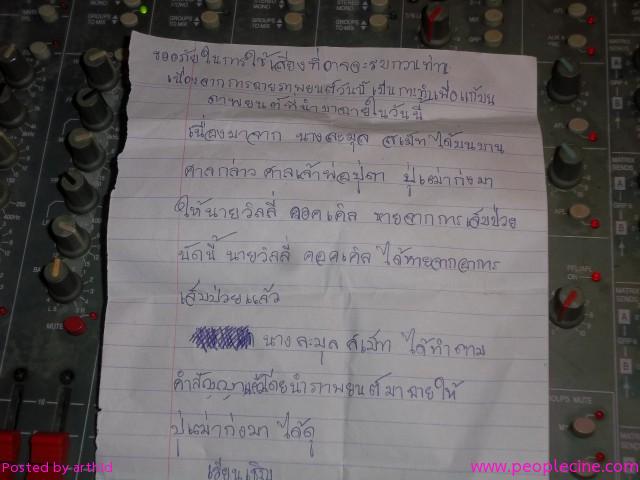 STEREO
MONO
GROUPS
TO MIX
GROUPS
TO MIX
STEREO
MONO
GROUPS
TO MIX
ขออภัยในการใช้เสียงที่อาจจะรบกวนท่าน
เนื่องจากการฉายภาพยนต์วันนี้เป็นการทำเพื่อแก้บน
ภาพยนต์ที่นำมาฉายในวันนี้
เนื่องมาจาก นางละมุล สเม็ท ได้บนบาน
ศาลกล่าว ศาลเจ้าพ่อปู่ตา ปู่เฒ่าก่งมา
ให้นายวิลลี่ คอคเคิล หายจากการเจ็บป่วย
บัดนี้ นายวิลลี่ คอคเคิล ได้หายจากอาการ
เจ็บป่วยแล้ว
นางละมุล สเม็ท ได้ทำตาม
คำสัญญาแล้วโดยนำภาพยนต์มาฉายให้
ปู่เฒ่าก่งมา ได้ดู
เรียนเชิญ
MUTE
AFL
PFL/AFL
ON
MATRIX
SENDS
A
B
MATRIX
SENDS
A
B
GROUPS MUTE
Posted by arthid
www.peoplecine.com